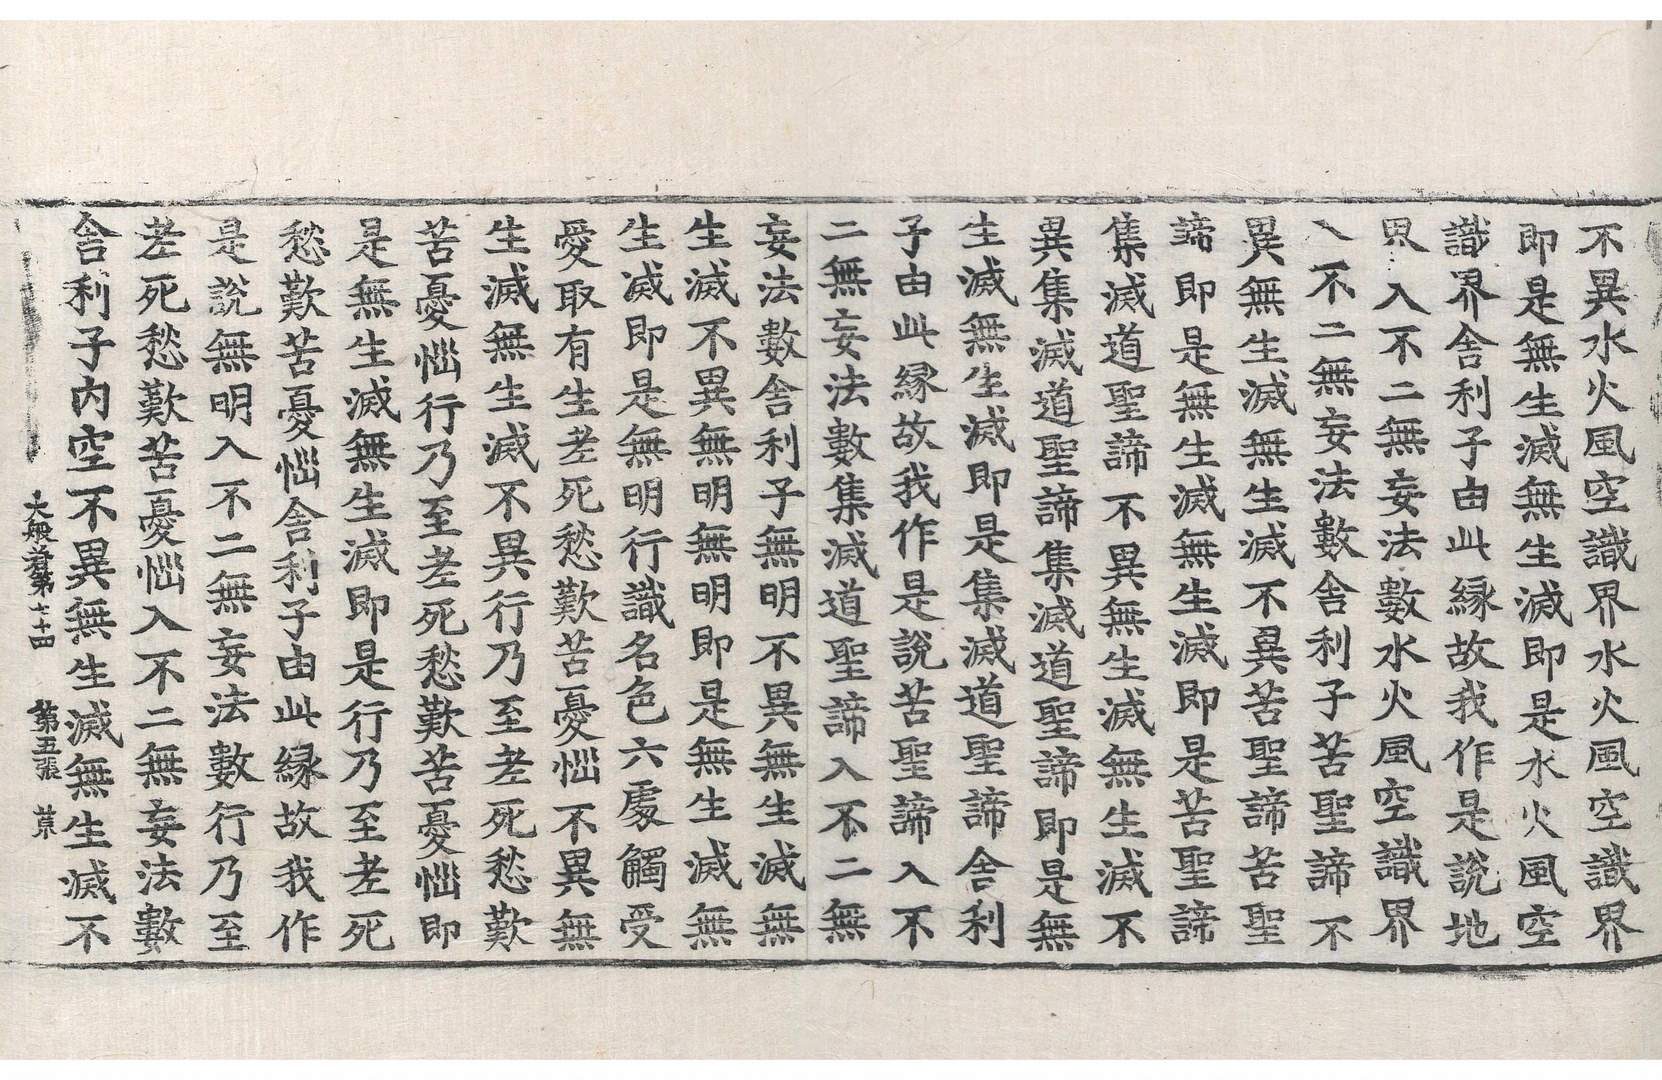 不異水火風空識界水火風空識界
即是無生滅無生滅即是水火風空
識界舍利子由此緣故我作是說地
界入不二無妄法數水火風空識界
入不二無妄法數舍利子苦聖諦不
異無生滅無生滅不異苦聖諦苦聖
諦即是無生滅無生滅即是苦聖諦
集滅道聖諦不異無生滅無生滅不
異集滅道聖諦集滅道聖諦即是無
生滅無生滅即是集滅道聖諦舍利
子由此緣故我作是說苦聖諦入不
二無妄法數集滅道聖諦入不二無
妄法數舍利子無明不異無生滅無
生滅不異無明無明即是無生滅無
生滅即是無明行識名色六處觸受
愛取有生老死愁歎苦憂惱不異無
生滅無生滅不異行乃至老死愁歎
苦憂惱行乃至老死愁歎苦憂惱即
是無生滅無生滅即是行乃至老死
愁歎苦憂惱舍利子由此緣故我作
是說無明入不二無妄法數行乃至
老死愁歎苦憂惱入不二無妄法數
舍利子內空不異無生滅無生滅不
大般若第七十四 第五張 荒